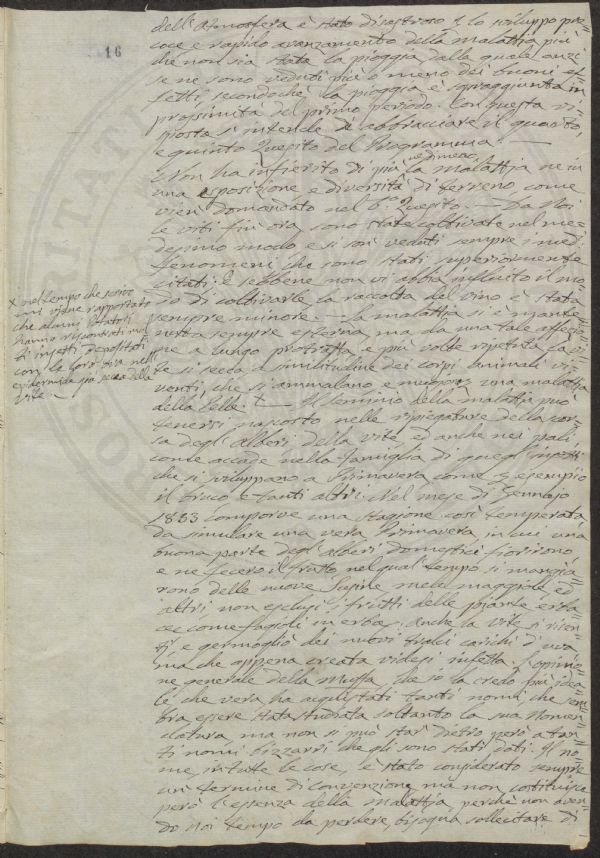 16
dell'Atmosfera è stato disastroso per lo sviluppo pre=
coce e rapido avanzamento della malattia più
che non sia stata la pioggia dalla quale anzi
se ne sono veduti più o meno dei buoni ef=
fetti, secondochè la pioggia è sopraggiunta in
prossimità del primo periodo. Con questa ri=
sposta si intende di abbracciare il quarto,
e quinto Quesito del Programma. —
Non ha infierito di più, nè di meno, la Malattia ne in
una esposizione e diversità di terreno, come
vien domandato nel 6° Quesito. — Da Noi
le viti fin ora sono state coltivate nel me=
desimo modo e si son veduti sempre i med.
fenomeni che sono stati superiormente
citati: E sebbene non vi abbia influito il mo=
do di coltivarle la raccolta del vino è stata
sempre minore. — La malattia si è mante=
nuta sempre esterna, ma da una tale affezio=
ne a lungo protratta e più volte ripetuta la vi=
te si secca a similitudine dei corpi animali vi=
venti, che si ammalano e muojono per una malattia
della Pelle. × — Il seminio della malattia può
tenersi nascosto nelle ripiegature della scor=
sa degl'Alberi della vite, ed anche nei pali
come accade nella famiglia di quegl'insetti
che si sviluppano a Primavera come per esempio
il bruco e tanti altri. Nel mese di Gennajo
1853 comparve una stagione così temperata
da simulare una vera Primavera, in cui una
buona parte degl'alberi domestici fiorirono
e ne fecero il frutto nel qual tempo si mangia=
rono delle nuove Susine mele maggiole ed
altri non esclusi i frutti delle piante erba=
cee come fagioli in erba. Anche la vite si risen=
tì e germogliò dei nuovi tralci carichi d'uva
ma che appena creata videsi infetta. L'opinio=
ne generale della Muffa, che io la credo più idea=
le che vera ha acquistati tanti nomi, che sem=
bra essere stata studiata soltanto la sua Nomen=
clatura, ma non si può star dietro però a tan=
ti nomi bizzarri che gli sono stati dati. Il no=
me, in tutte le cose, è stato considerato sempre
un termine di convenzione ma non costituisce
però l'essenza della Malattia, perchè non aven=
do Noi tempo da perdere, bisogna sollecitare di
× nel tempo che scrivo
mi viene rapportato
che alcuni Potatori
hanno riscontrati mol=
ti insetti depositati
con la loro ova nell'
epidermide già secca della
vite —